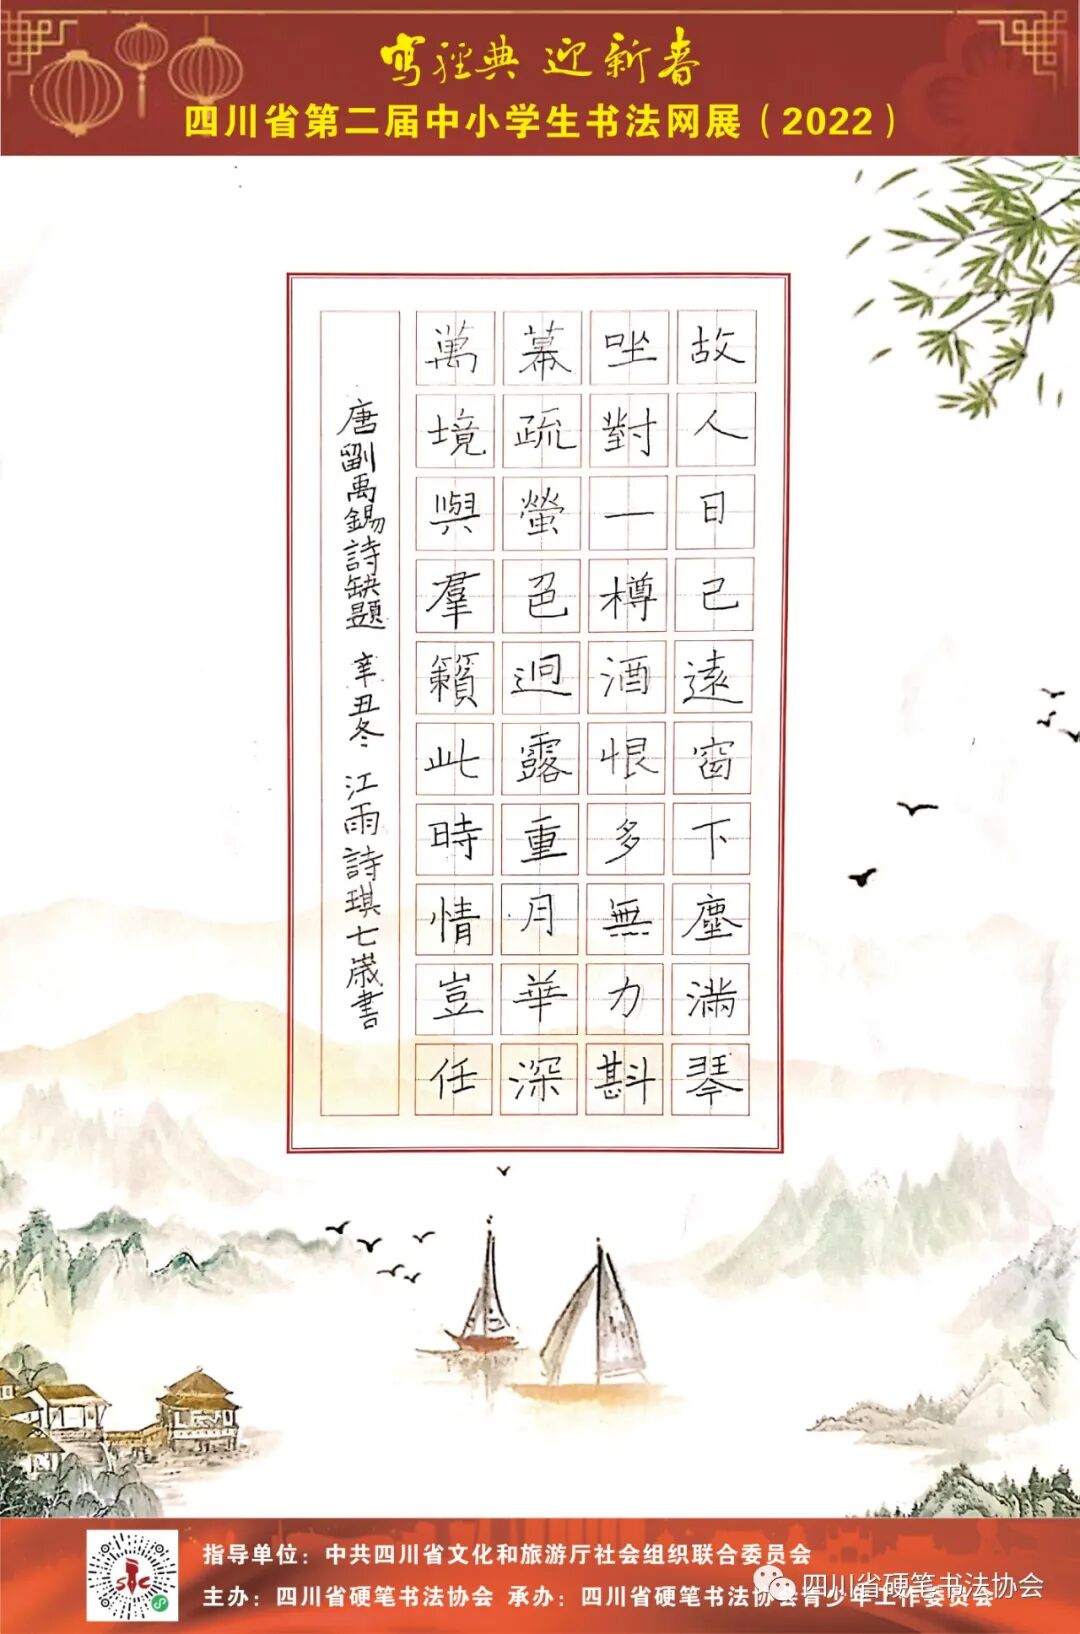 写经典 迎新春
四川省第二届中小学生书法网展（2022）
故人日已遠窗下塵滿琴
唑對一樽酒恨多無力斟
幕疏螢色迥露重月華深
萬境與羣籟此時情豈任
唐劉禹錫詩缺題 辛丑冬 江雨詩琪七歲書
指导单位：中共四川省文化和旅游厅社会组织联合委员会
主办：四川省硬笔书法协会 承办：四川省硬笔书法协会青少年工作委员会
四川省硬笔书法协会